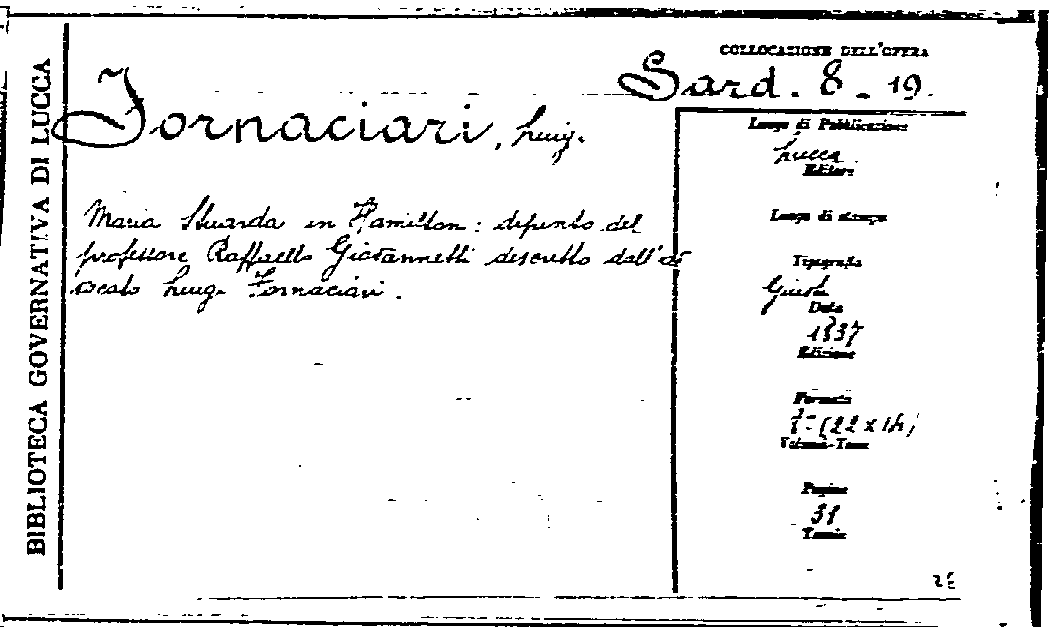 BIBLIOTECA GOVERNATIVA DI LUCCA
COLLOCAZIONE DELL'OPERA
Sard. 8 - 19.
Fornaciari, Luig.
Maria Stuarda in Hamilton: dipinto del
professore Raffaello Giovannetti descritto dall'av
vocato Luigi Fornaciari.
Luogo di Pubblicazione
Lucca
Editore
Luogo di stampa
Tipografia
Giusti
Data
1837
Edizione
Formato
8° (22 x 14)
Volumi-Tomi
Pagine
31
Tavole